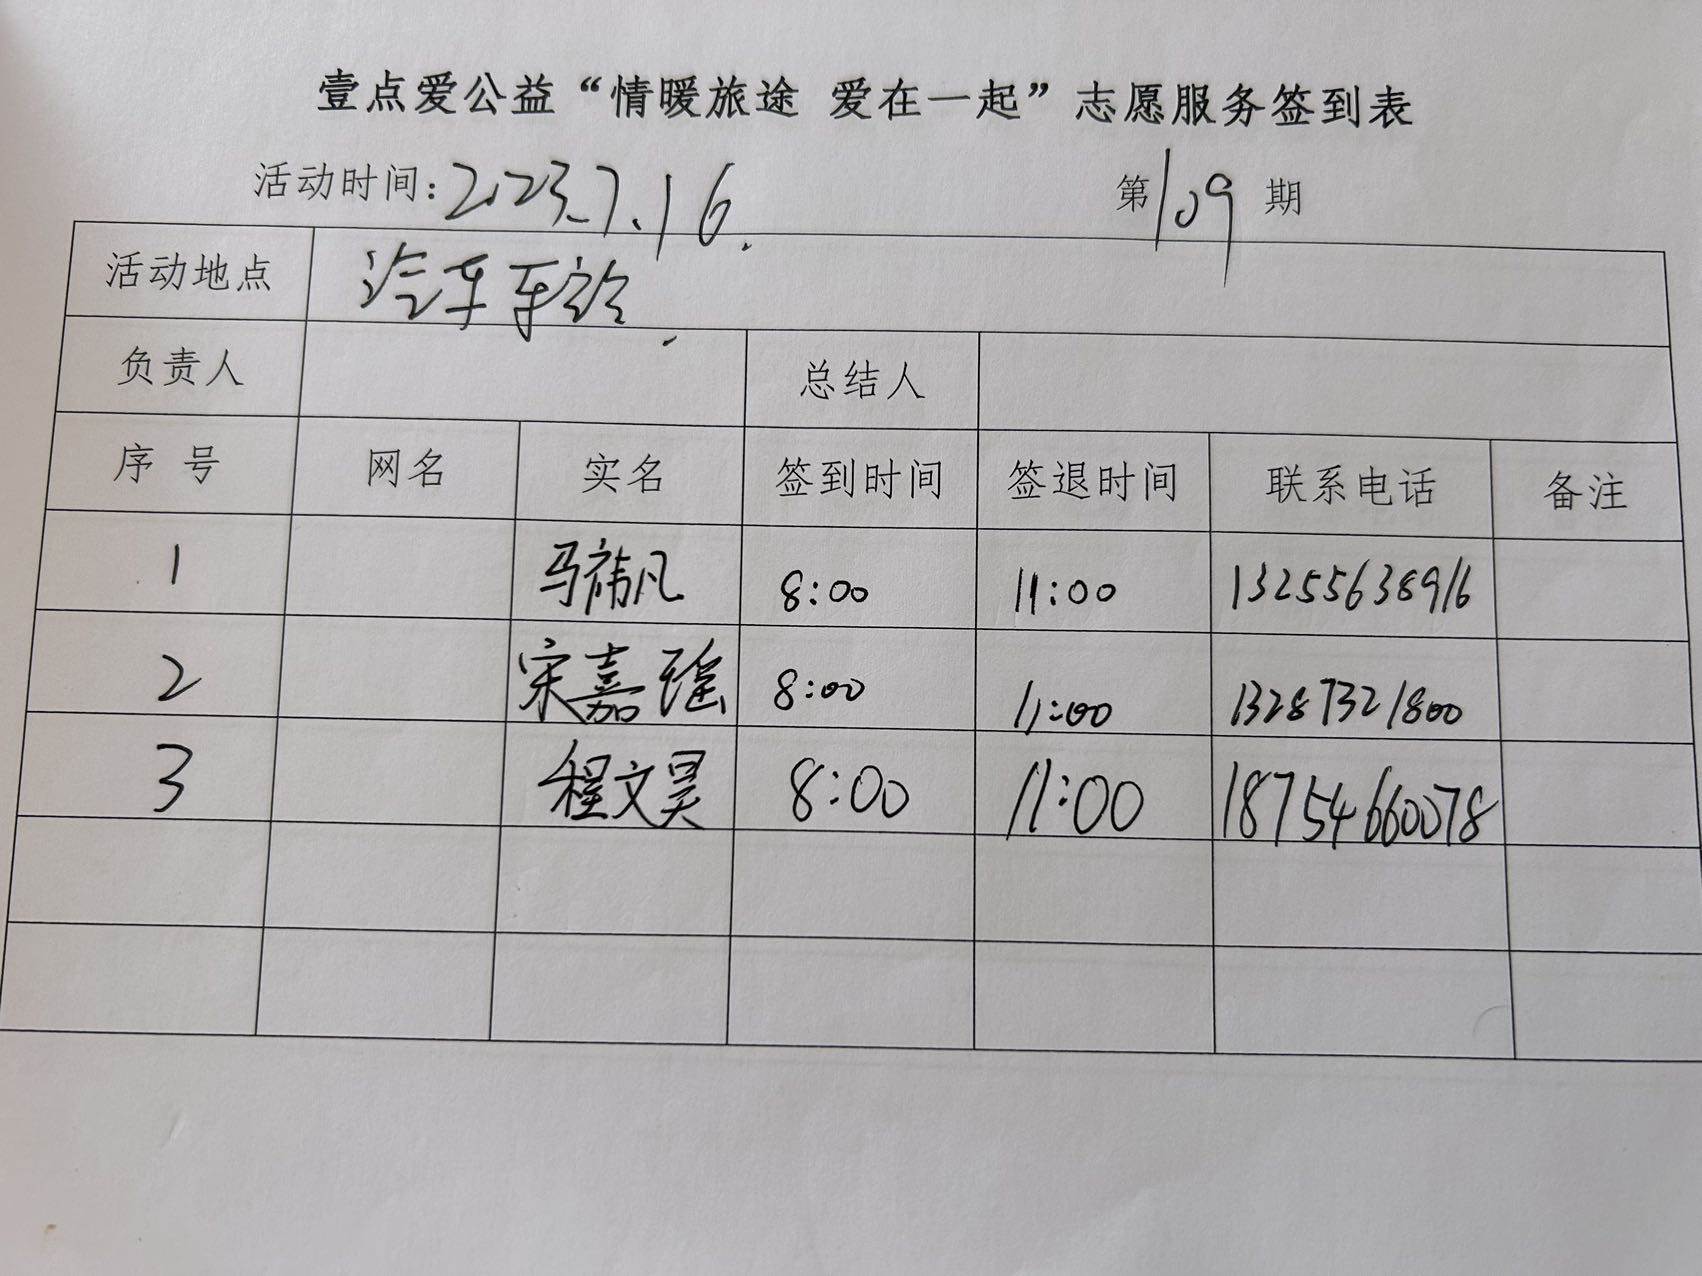 壹点爱公益“情暖旅途 爱在一起”志愿服务签到表
活动时间:2023.7.16. 第109期
活动地点 汽车车站.
负责人 总结人
序号 网名 实名 签到时间 签退时间 联系电话 备注
1 马祎凡 8:00 11:00 13255638916
2 宋嘉瑶 8:00 11:00 13287321800
3 程文昊 8:00 11:00 18754660078